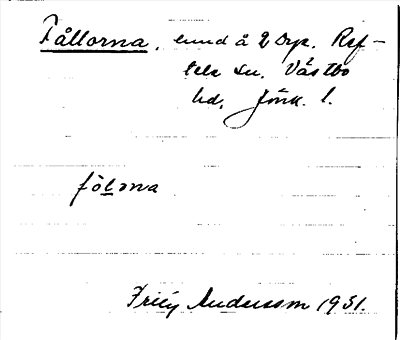 Fållorna, lund å 2 Dyr. Ref-
tele sn. Västbo
hd. Jönk. l.
fölərna
Fritz Andersson 1931.